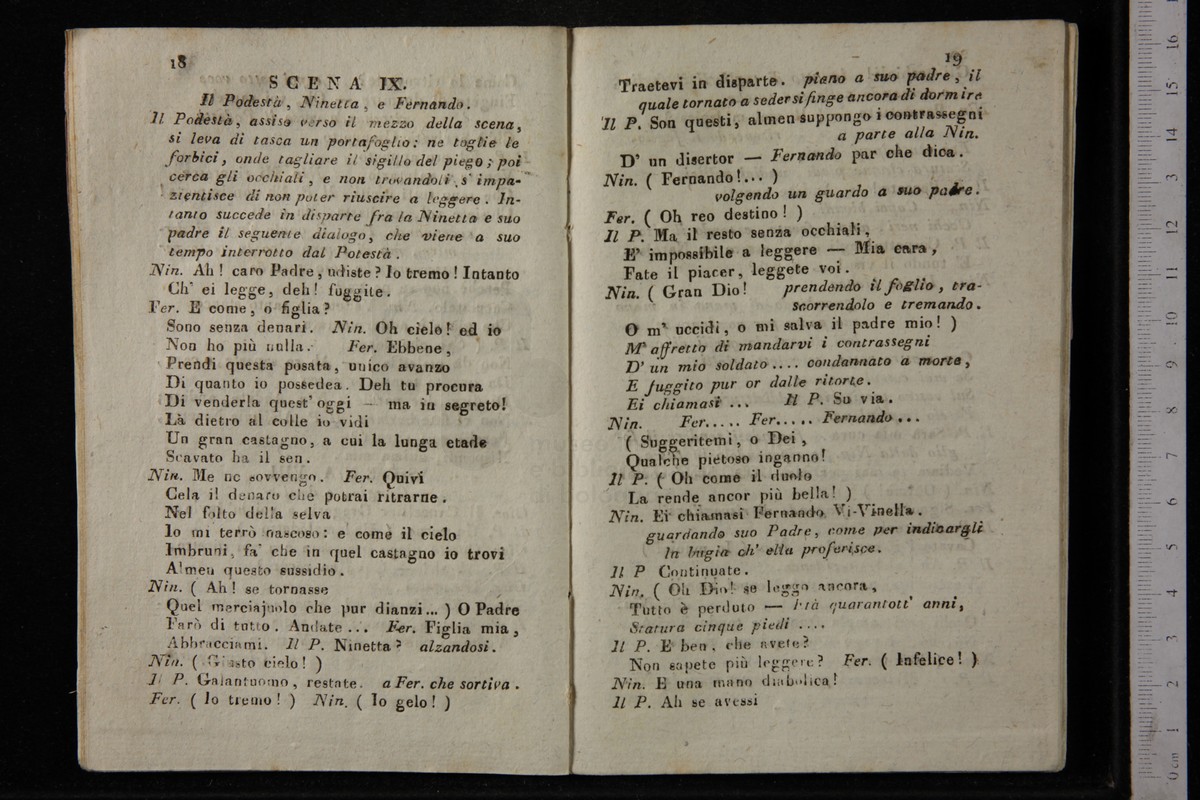 18
SCENA IX.
Il Podestà, Ninetta, e Fernando.
Il Podestà, assiso verso il mezzo della scena,
si leva di tasca un portafoglio: ne toglie le
forbici, onde tagliare il sigillo del piego; poi
cerca gli occhiali, e non trovandoli, s' impa-
zientisce di non poter riuscire a leggere. In-
tanto succede in disparte fra la Ninetta e suo
padre il seguente dialogo, che viene a suo
tempo interrotto dal Potestà.
Nin. Ah! caro Padre, udiste? Io tremo! Intanto
Ch' ei legge, deh! fuggite.
Fer. E come, o figlia?
Sono senza denari. Nin. Oh cielo! ed io
Non ho più nulla. Fer. Ebbene,
Prendi questa posata, unico avanzo
Di quanto io possedea. Deh tu procura
Di venderla quest' oggi — ma in segreto!
Là dietro al colle io vidi
Un gran castagno, a cui la lunga etade
Scavato ha il sen.
Nin. Me ne sovvengo. Fer. Quivi
Cela il denaro che potrai ritrarne.
Nel folto della selva
Io mi terrò nascoso: e come il cielo
Imbruni, fa' che in quel castagno io trovi
Almen questo sussidio.
Nin. ( Ah! se tornasse
Quel merciajuolo che pur dianzi... ) O Padre
Farò di tutto. Andate... Fer. Figlia mia,
Abbracciami. Il P. Ninetta? alzandosi.
Nin. ( Giusto cielo! )
Il P. Galantuomo, restate. a Fer. che sortiva.
Fer. ( Io tremo! ) Nin. ( Io gelo! )
19
Traetevi in disparte. piano a suo padre, il
quale tornato a sedersi finge ancora di dormire
Il P. Son questi, almen suppongo i contrassegni
a parte alla Nin.
D' un disertor — Fernando par che dica.
Nin. ( Fernando!... )
volgendo un guardo a suo padre.
Fer. ( Oh reo destino! )
Il P. Ma il resto senza occhiali,
E' impossibile a leggere — Mia cara,
Fate il piacer, leggete voi.
Nin. ( Gran Dio! prendendo il foglio, tra-
scorrendolo e tremando.
O m' uccidi, o mi salva il padre mio! )
M' affretto di mandarvi i contrassegni
D' un mio soldato.... condannato a morte,
E fuggito pur or dalle ritorte.
Ei chiamasi ... Il P. Su via.
Nin. Fer..... Fer..... Fernando...
( Suggeritemi, o Dei,
Qualche pietoso inganno!
Il P. ( Oh come il duolo
La rende ancor più bella! )
Nin. Ei chiamasi Fernando Vi-Vinella.
guardando suo Padre, come per indicargli
la bugia ch' ella proferisce.
Il P Continuate.
Nin. ( Oh Dio! se leggo ancora,
Tutto è perduto — Età quarantott' anni,
Statura cinque piedi ....
Il P. E ben, che avete?
Non sapete più leggere? Fer. ( Infelice! )
Nin. E una mano diabolica!
Il P. Ah se avessi
0 cm 1 2 3 4 5 6 7 8 9 10 11 12 13 14 15 16